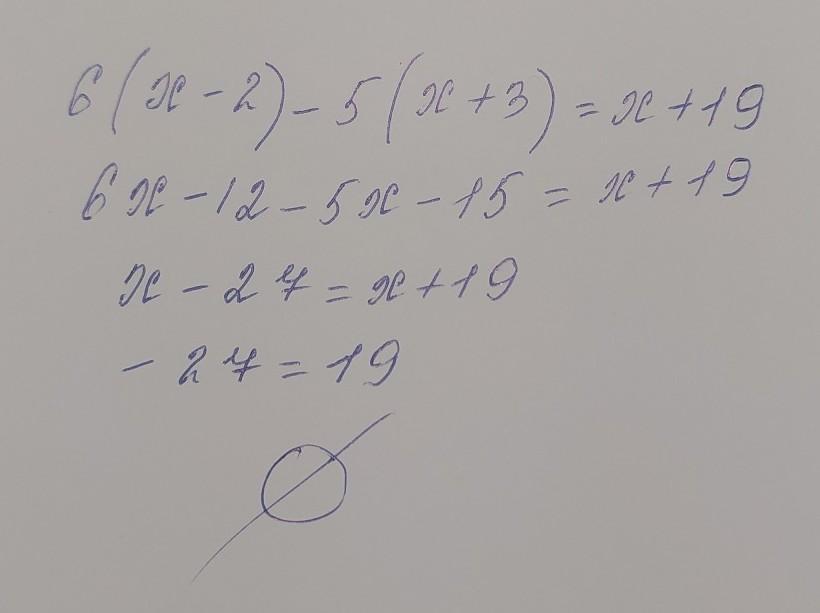 6(x-2)-5(x+3)=x+19
6x-12-5x-15=x+19
x-27=x+19
-27=19
∅